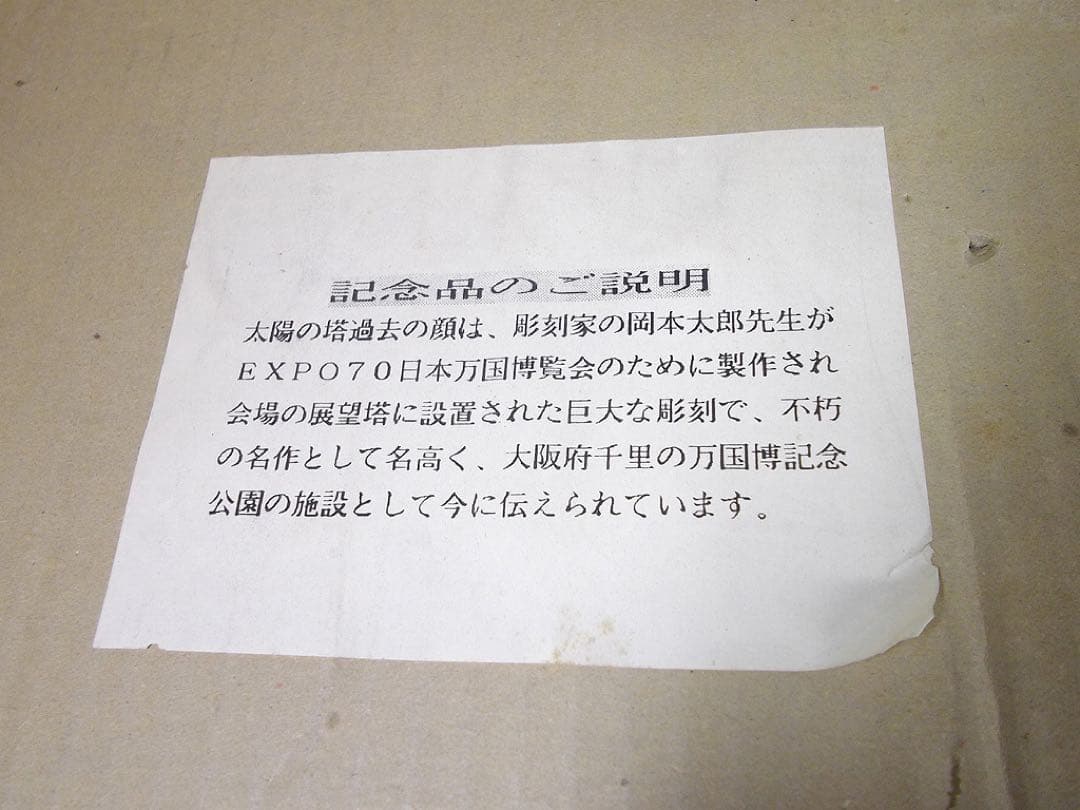 記念品のご説明
太陽の塔過去の顔は、彫刻家の岡本太郎先生が
EXPO70日本万国博覧会のために製作され
会場の展望塔に設置された巨大な彫刻で、不朽
の名作として名高く、大阪府千里の万国博記念
公園の施設として今に伝えられています。